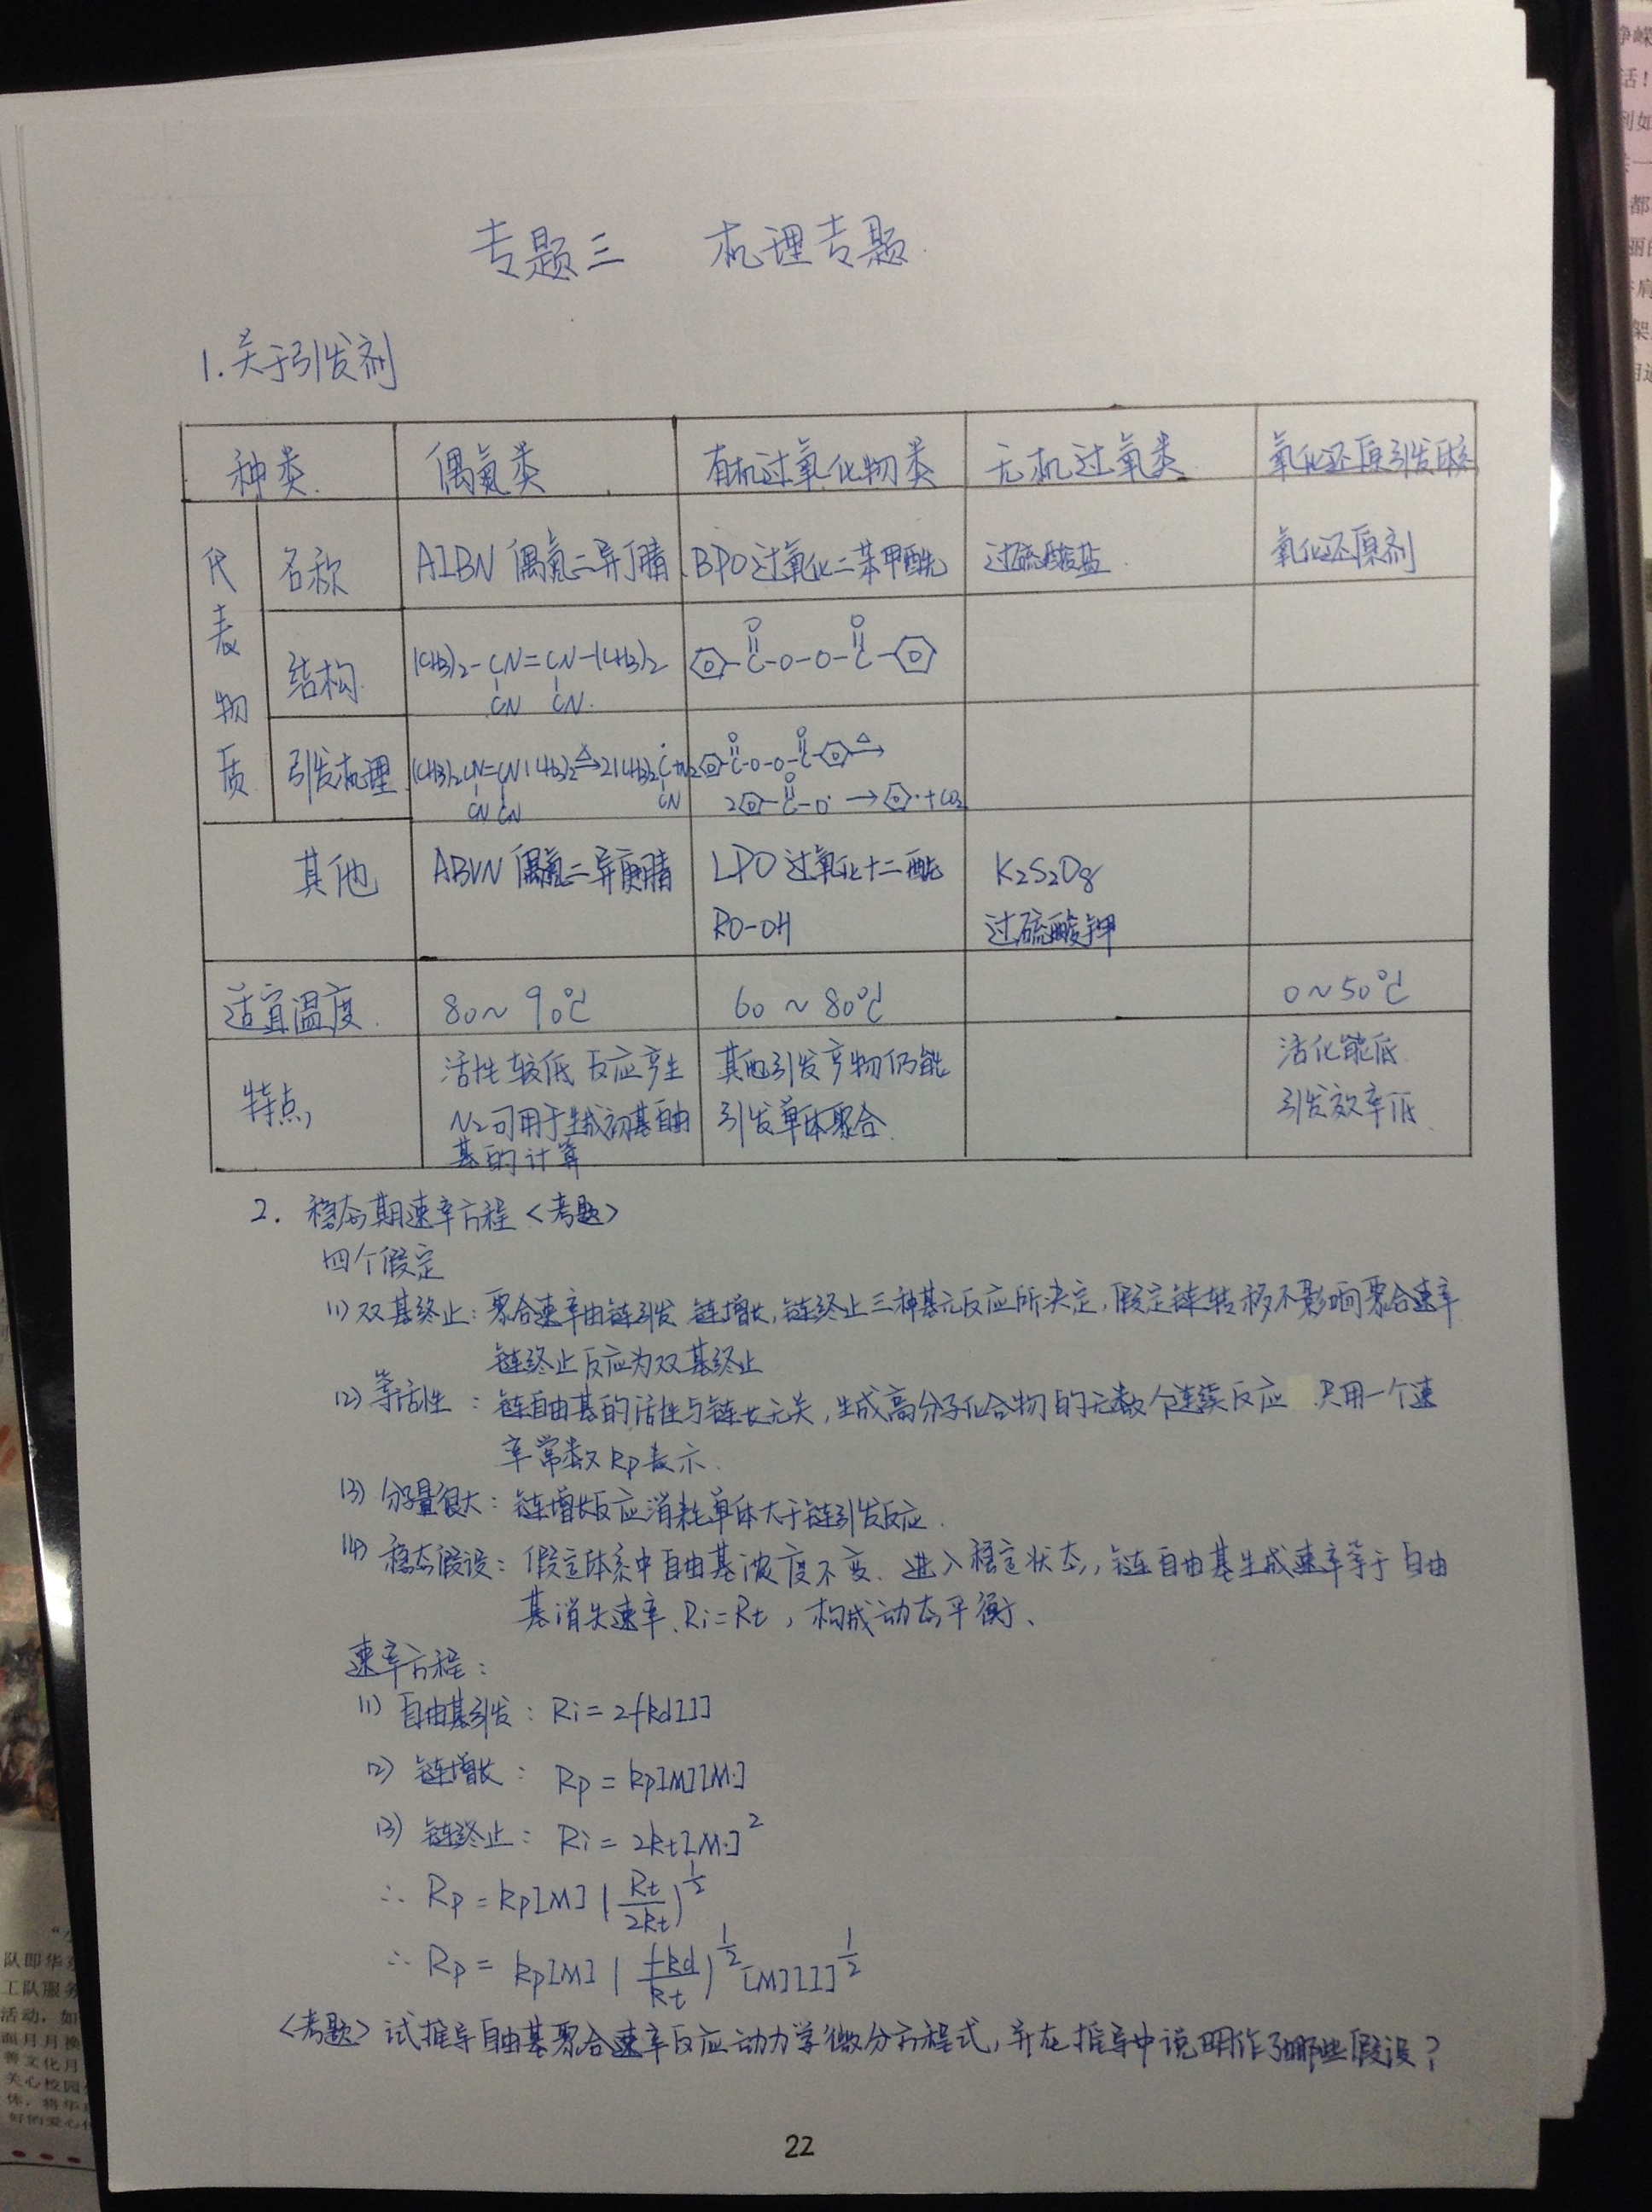 专题三 机理专题
1.关于引发剂
种类 偶氮类 有机过氧化物类 无机过氧类 氧化还原引发体系
代表物质 名称 AIBN 偶氮二异丁腈 BPO过氧化二苯甲酰 过硫酸盐 氧化还原剂
结构 (CH3)2-CN=CN-(CH3)2
CN CN
O O
C-O-O-C
引发机理 (CH3)2CN=CN(CH3)2 △→2(CH3)2Ċ+N2
CN CN CN
O O
C-O-O-C △→
2 C-O· → ·+CO2
其他 ABVN 偶氮二异庚腈 LPO 过氧化十二酰 K2S2O8
RO-OH 过硫酸钾
适宜温度 80~90℃ 60~80℃ 0~50℃
特点 活性较低 反应产生 其他引发产物仍能 活化能低
N2可用于生成初基自由 引发单体聚合 引发效率低
基的计算
2. 稳态期速率方程<考题>
四个假定
(1) 双基终止:聚合速率由链引发 链增长,链终止三种基元反应所决定,假定链转移不影响聚合速率
链终止反应为双基终止
(2) 等活性:链自由基的活性与链长无关,生成高分子化合物的无数个连续反应 只用一个速
率常数kp表示.
(3) 分子量很大:链增长反应消耗单体大于链引发反应.
(4) 稳态假设:假定体系中自由基浓度不变.进入稳定状态,链自由基生成速率等于自由
基消失速率、Ri=Rt,构成动态平衡、
速率方程:
(1) 自由基引发:Ri=2fkd[I]
(2) 链增长:Rp=kp[M][M·]
(3) 链终止:Ri=2kt[M·]²
∴ Rp=kp[M](Rt/2kt)^1/2
∴ Rp=kp[M](fkd/kt)^1/2[M][I]^1/2
<考题>试推导自由基聚合速率反应动力学微分方程式,并在推导中说明作了哪些假设?
22